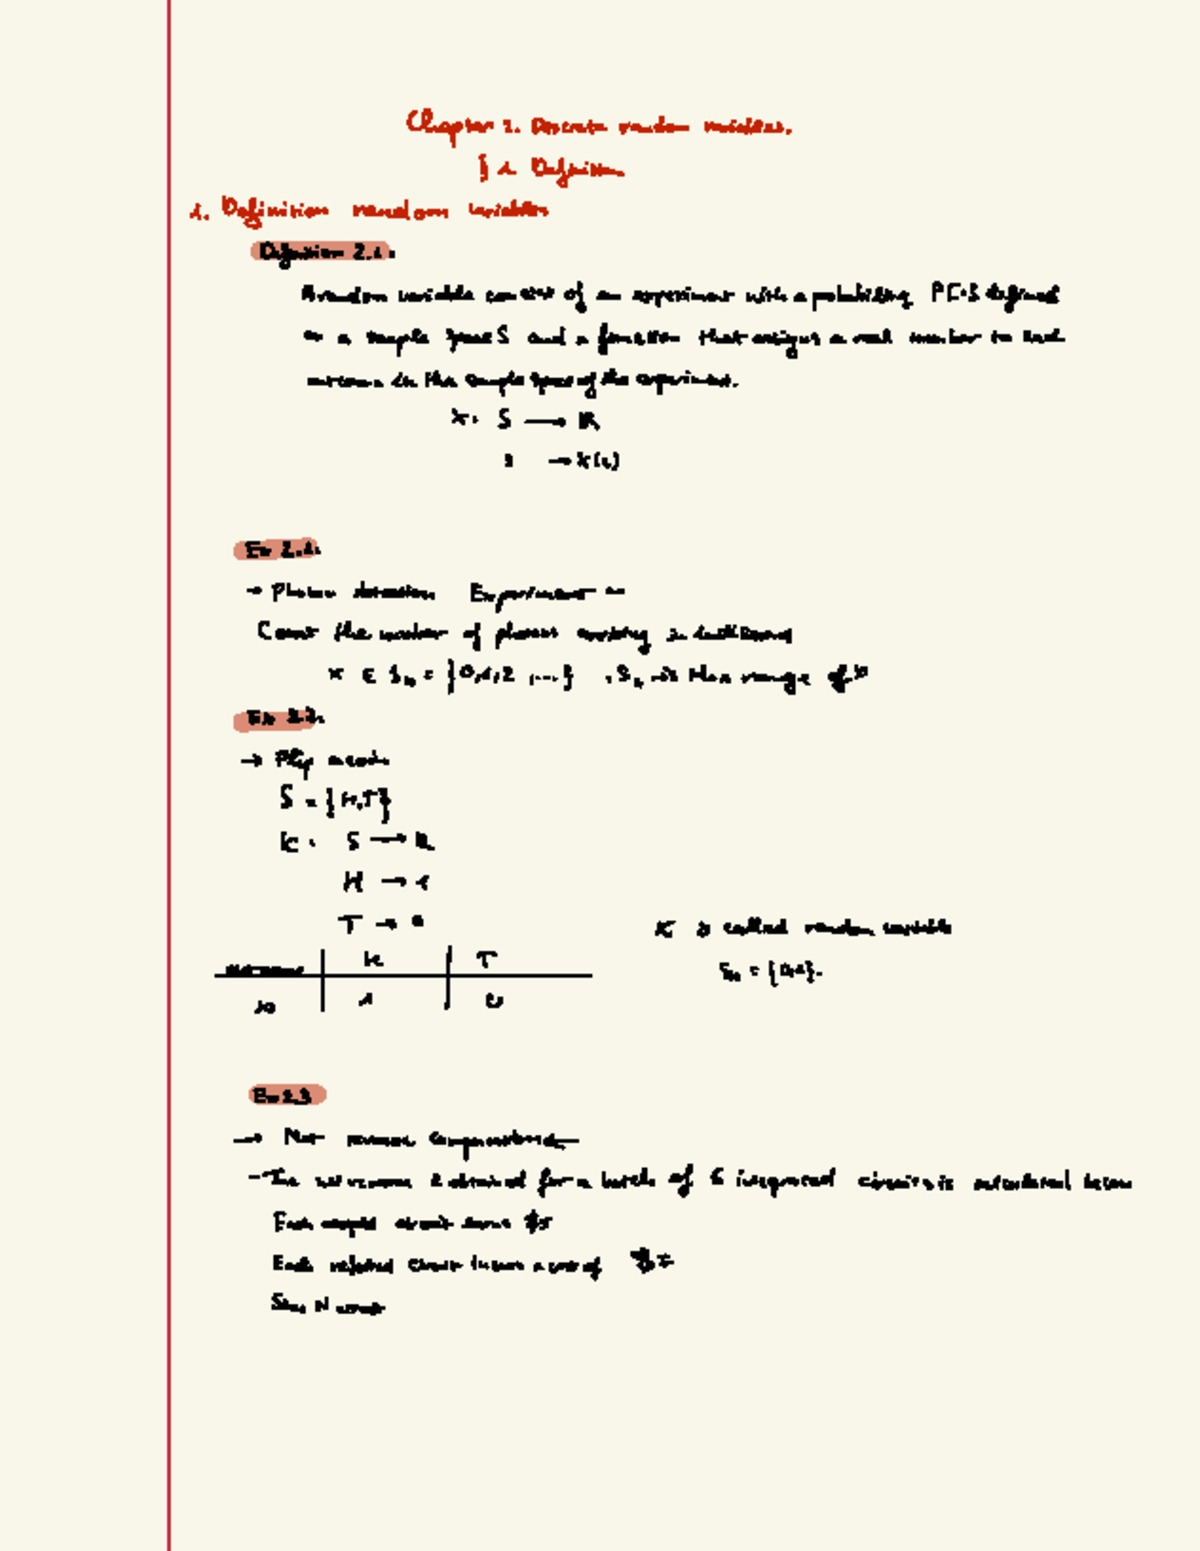 Chapter 2. Discrete random variables.
§ 1. Definition
1. Definition random variables
Definition 2.1.
A random variable consist of an experiment with a probability P[.] defined
on a sample space S and a function that assigns a real number to each
outcome in the sample space of the experiment.
X: S → R
s → X(s)
Ex 2.1.
→ Photon detection Experiment
Count the number of photons arriving
X ∈ Sx = {0,1,2 ,...} , Sx is the range of X
Ex 2.2.
→ Flip a coin
S = {H,T}
X: S → R
H → 1
T → 0
X is called random variable
Sx = {0,1}.
outcome H T
X 1 0
Ex 2.3
→ Net revenue
- The net revenue R obtained for a batch of 6 integrated circuits is calculated below
Each accepted circuit
Each rejected circuit a cost of